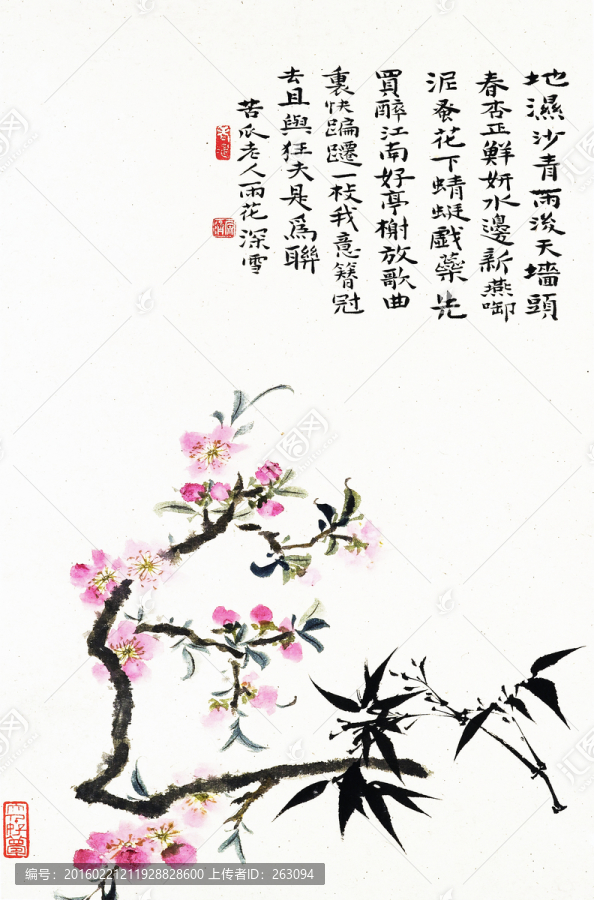 地濕沙青雨後天墻頭
春杏正鮮妍水邊新燕啣
泥蚤花下蜻蜓戲藥先
買醉江南好亭榭放歌曲
裏快蹁躚一枝我意簪冠
去且與狂夫是爲聯
苦瓜老人雨花深雪
编号：20160221211928828600 上传者ID：263094